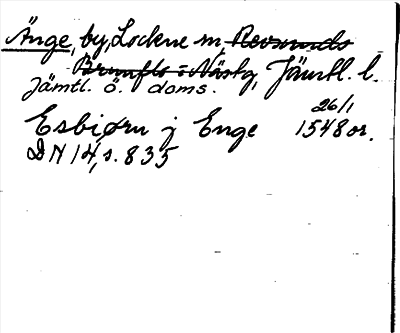 Änge, by, Lockne sn, Revsunds
Brunflo - Näskt, Jämtl. l.
Jämtl. ö. doms.
26/1
Esbiørn j Enge 1548 or.
DN 14, s. 835